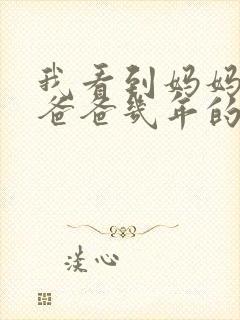 我看到妈妈
爸爸几年的
淡心